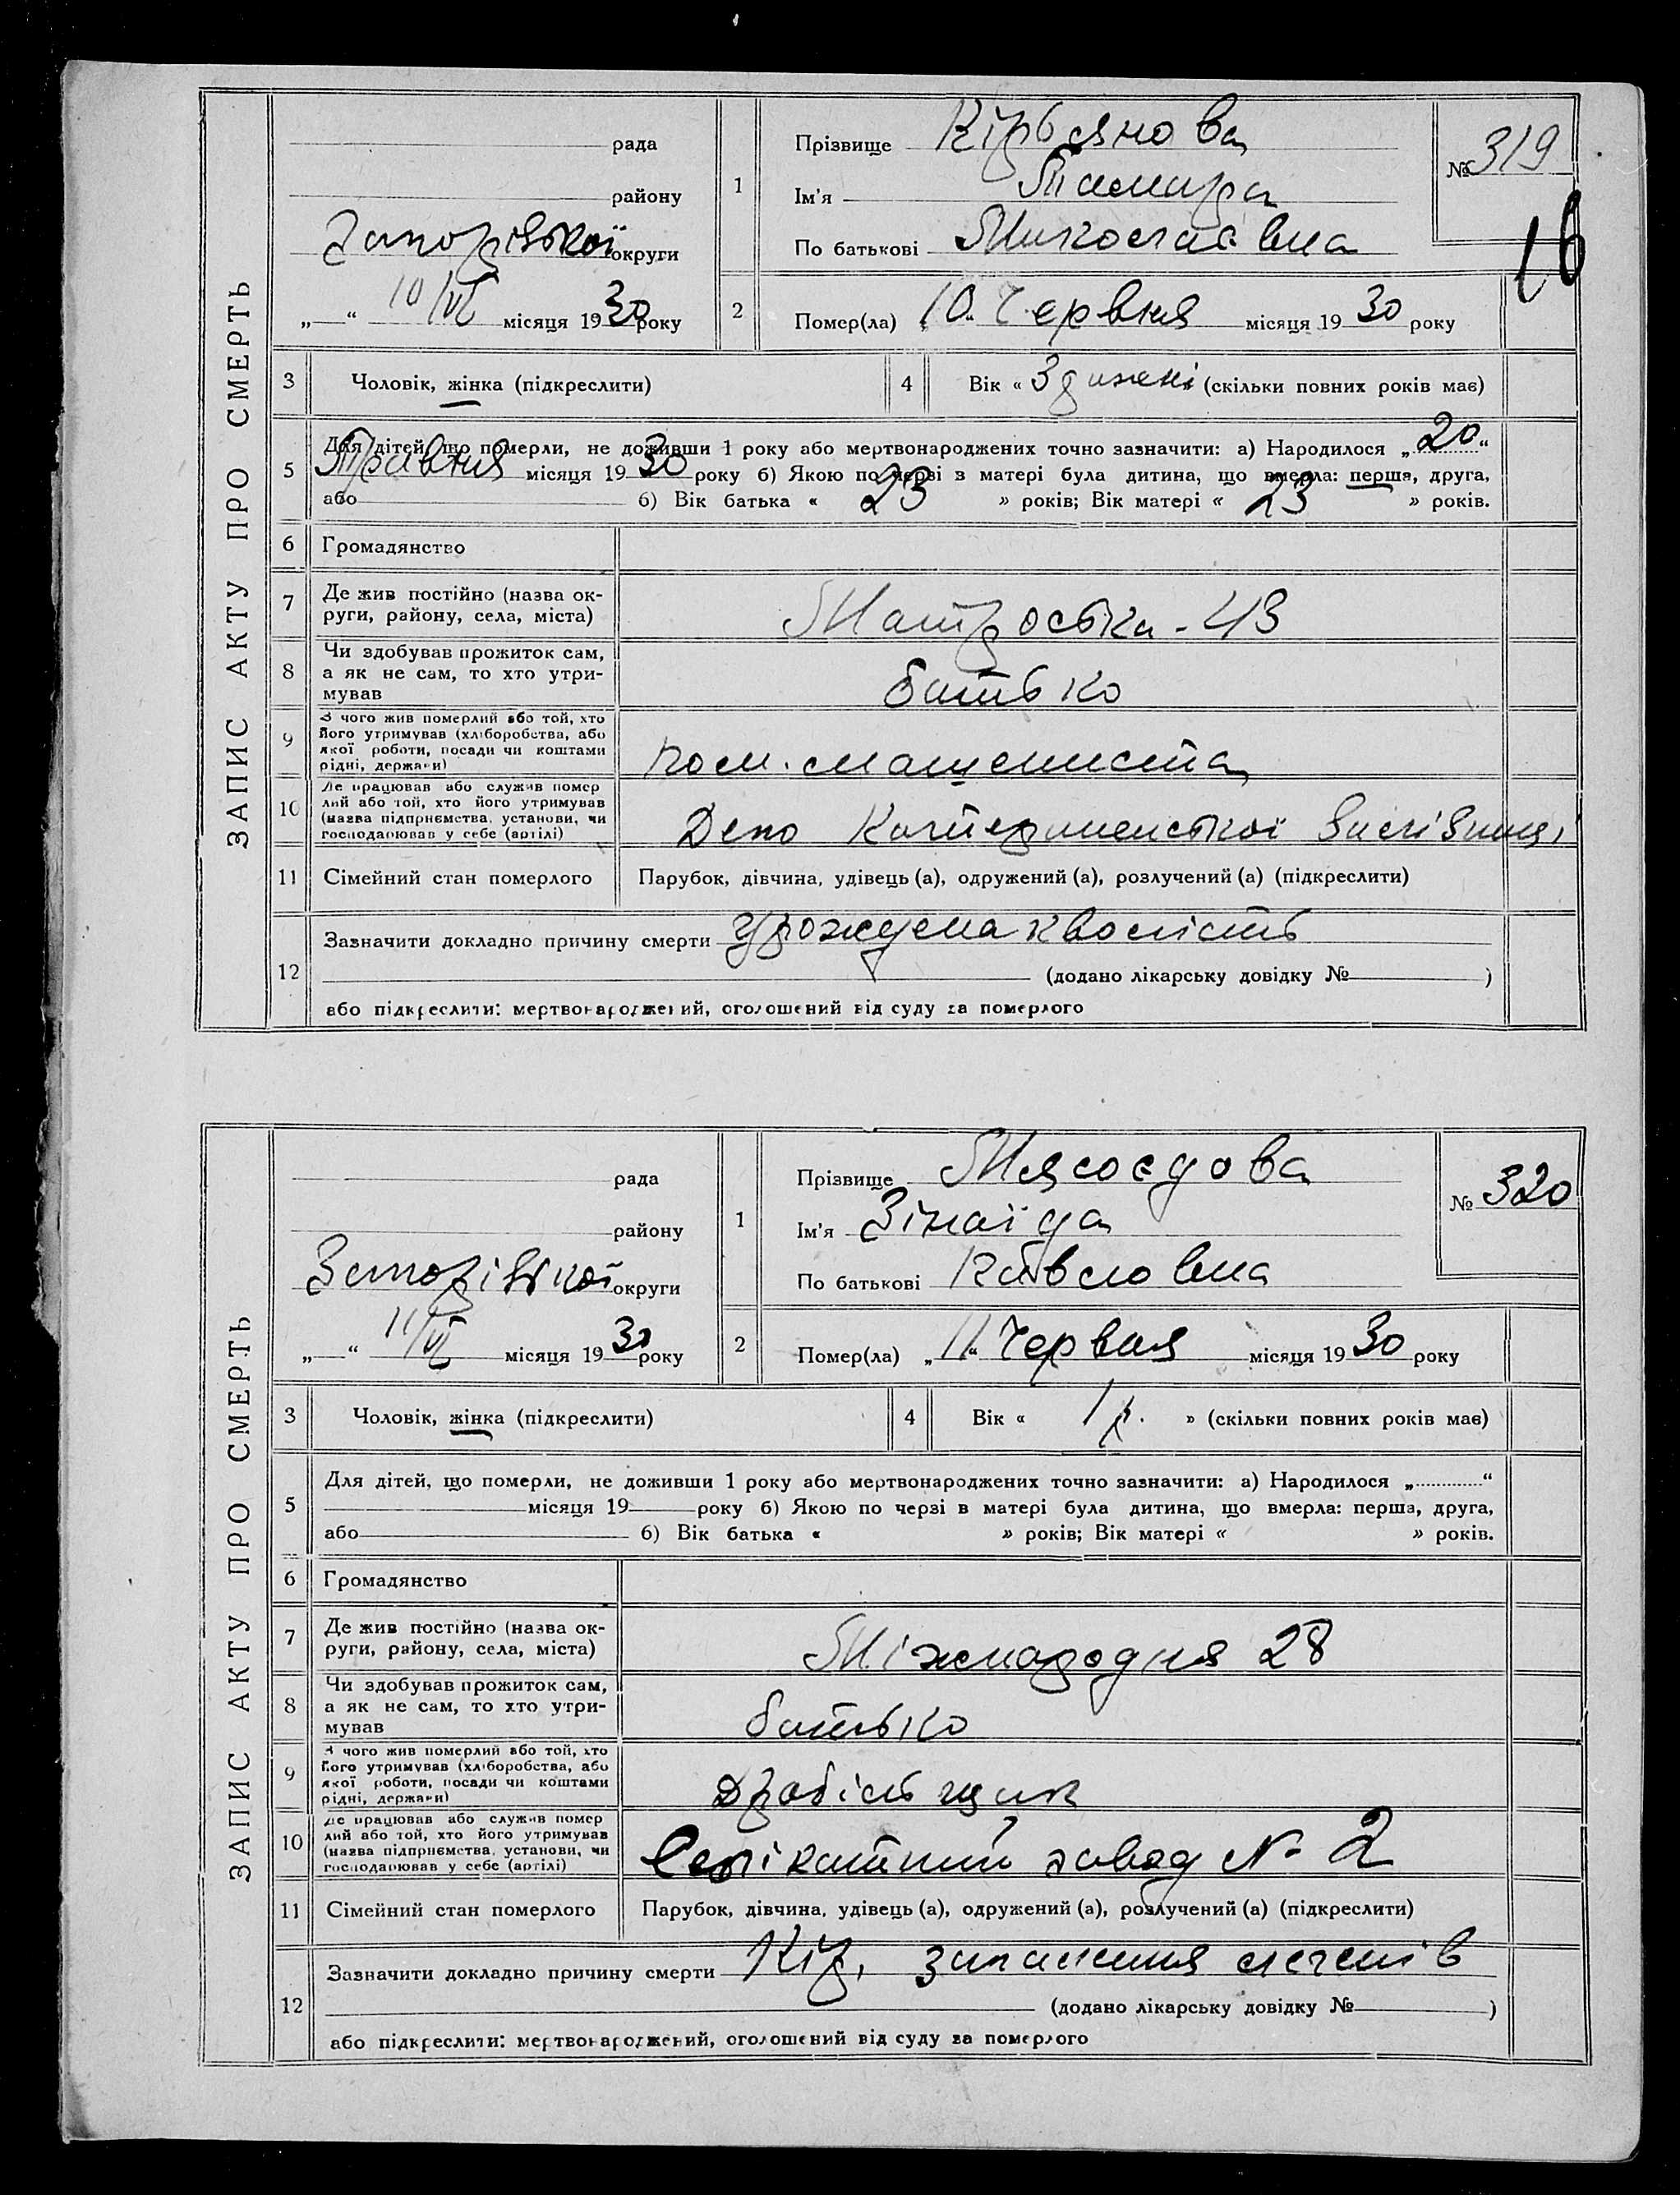 ЗАПИС АКТУ ПРО СМЕРТЬ
рада
району
Запорізької округи
„ “ 10/VI місяця 1930 року
1 Прізвище Кірьянова
Ім'я Тамара
По батькові Миколаєвна
№ 319
16
2 Помер(ла) „10“ Червня місяця 1930 року
3 Чоловік, жінка (підкреслити)
4 Вік « 3 тижні (скільки повних років має)
5 Для дітей, що померли, не доживши 1 року або мертвонароджених точно зазначити: а) Народилося „20“
Травня місяця 1930 року б) Якою по черзі в матері була дитина, що вмерла: перша, друга,
або б) Вік батька « 23 » років; Вік матері « 23 » років.
6 Громадянство
7 Де жив постійно (назва ок-
руги, району, села, міста)
Матроська - 43
8 Чи здобував прожиток сам,
а як не сам, то хто утри-
мував
батько
9 З чого жив померлий або той, хто
його утримував (хліборобства, або
якої роботи, посади чи коштами
рідні, держави)
пом. машениста
10 Де працював або служив помер
лий або той, хто його утримував
(назва підприємства, установи, чи
господарював у себе (артілі)
Депо Катерининської
11 Сімейний стан померлого Парубок, дівчина, удівець (а), одружений (а), розлучений (а) (підкреслити)
12 Зазначити докладно причину смерти урождена кволість
(додано лікарську довідку № )
або підкреслити: мертвонароджений, оголошений від суду за померлого
ЗАПИС АКТУ ПРО СМЕРТЬ
рада
району
Запорізької округи
„ “ 11/VI місяця 1930 року
1 Прізвище Мясоєдова
Ім'я Зінаїда
По батькові
№ 320
2 Помер(ла) „11“ Червня місяця 1930 року
3 Чоловік, жінка (підкреслити)
4 Вік « 1 р. » (скільки повних років має)
5 Для дітей, що померли, не доживши 1 року або мертвонароджених точно зазначити: а) Народилося „ “
місяця 19 року б) Якою по черзі в матері була дитина, що вмерла: перша, друга,
або б) Вік батька « » років; Вік матері « » років.
6 Громадянство
7 Де жив постійно (назва ок-
руги, району, села, міста)
Міжнародня 28
8 Чи здобував прожиток сам,
а як не сам, то хто утри-
мував
батько
9 З чого жив померлий або той, хто
його утримував (хліборобства, або
якої роботи, посади чи коштами
рідні, держави)
10 Де працював або служив помер
лий або той, хто його утримував
(назва підприємства, установи, чи
господарював у себе (артілі)
Селікатний завод № 2
11 Сімейний стан померлого Парубок, дівчина, удівець (а), одружений (а), розлучений (а) (підкреслити)
12 Зазначити докладно причину смерти Кір, запалення легенів
(додано лікарську довідку № )
або підкреслити: мертвонароджений, оголошений від суду за померлого